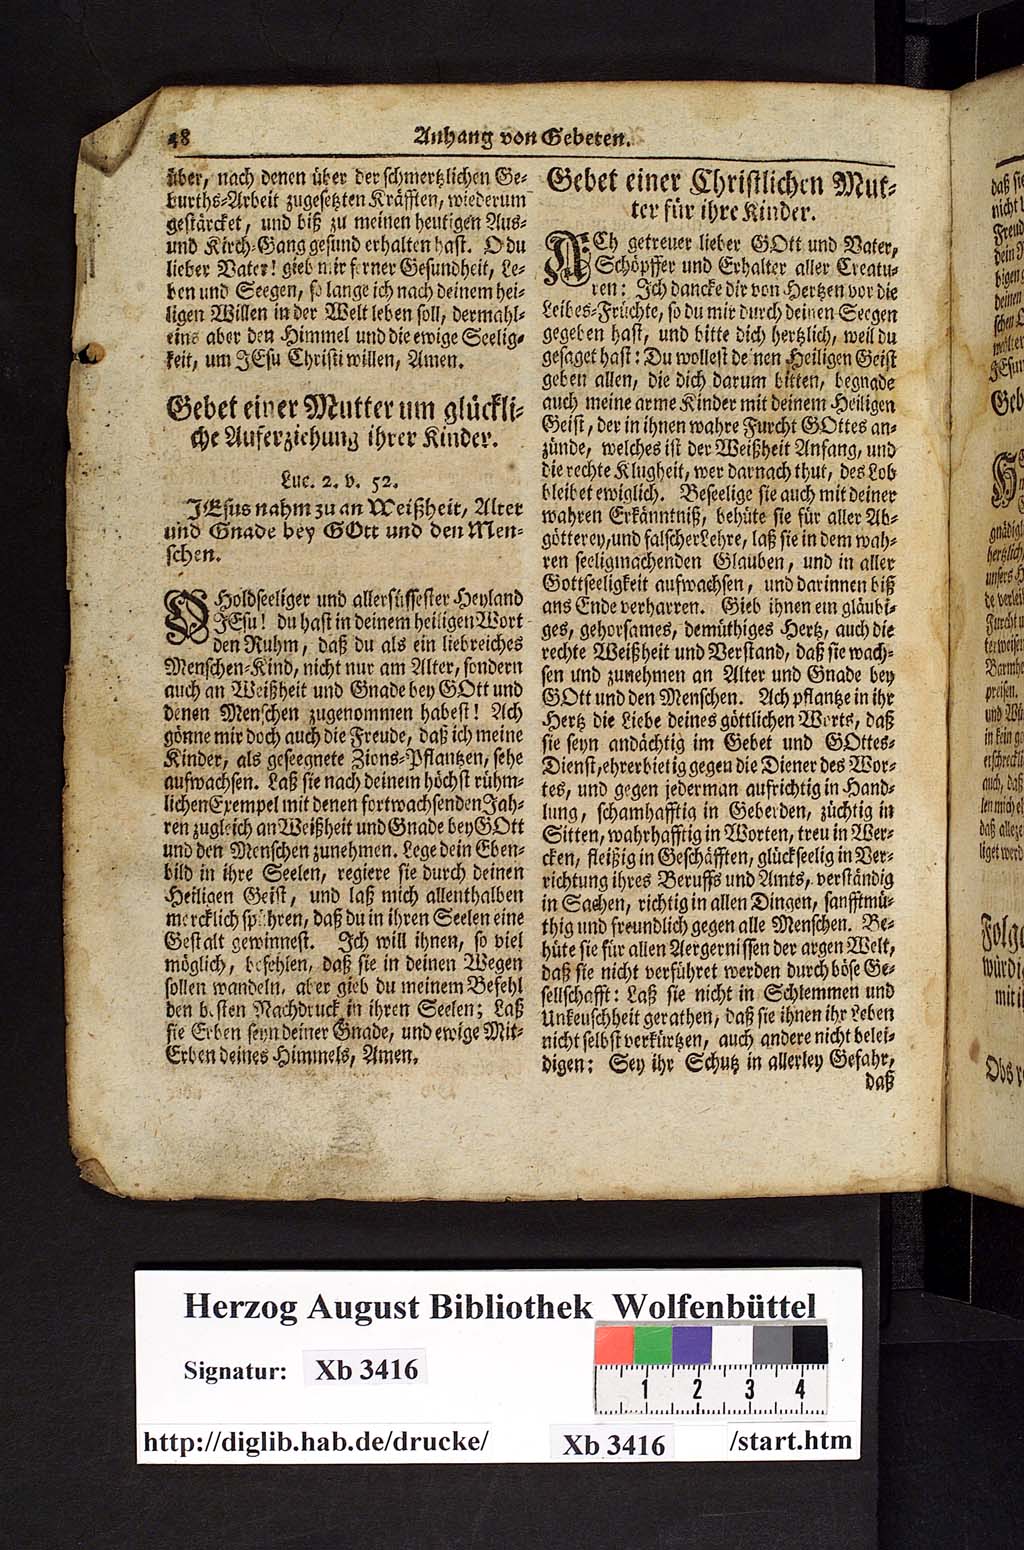 48
Anhang von Gebeten.
über, nach denen über der schmertzlichen Ge-
burths-Arbeit zugesetzten Kräfften, wiederum
gestärcket, und biß zu meinen heutigen Aus-
und Kirch-Gang gesund erhalten hast. O du
lieber Vater! gieb mir ferner Gesundheit, Le-
ben und Seegen, so lange ich nach deinem hei-
ligen Willen in der Welt leben soll, dermahl-
eins aber den Himmel und die ewige Seelig-
keit, um JEsu Christi willen, Amen.
Gebet einer Mutter um glückli-
che Auferziehung ihrer Kinder.
Luc. 2. v. 52.
JEsus nahm zu an Weißheit, Alter
und Gnade bey GOtt und den Men-
schen.
O Holdseeliger und allersüssester Heyland
JEsu! du hast in deinem heiligen Wort
den Ruhm, daß du als ein liebreiches
Menschen-Kind, nicht nur am Alter, sondern
auch an Weißheit und Gnade bey GOtt und
denen Menschen zugenommen habest! Ach
gönne mir doch auch die Freude, daß ich meine
Kinder, als geseegnete Zions-Pflantzen, sehe
aufwachsen. Laß sie nach deinem höchst rühm-
lichen Exempel mit denen fortwachsenden Jah-
ren zugleich an Weißheit und Gnade bey GOtt
und den Menschen zunehmen. Lege dein Eben-
bild in ihre Seelen, regiere sie durch deinen
Heiligen Geist, und laß mich allenthalben
mercklich spühren, daß du in ihren Seelen eine
Gestalt gewinnest. Ich will ihnen, so viel
möglich, befehlen, daß sie in deinen Wegen
sollen wandeln, aber gieb du meinem Befehl
den besten Nachdruck in ihren Seelen; Laß
sie Erben seyn deiner Gnade, und ewige Mit-
Erben deines Himmels, Amen.
Gebet einer Christlichen Mut-
ter für ihre Kinder.
ACh getreuer lieber GOtt und Vater,
Schöpffer und Erhalter aller Creatu-
ren: Ich dancke dir von Hertzen vor die
Leibes-Früchte, so du mir durch deinen Seegen
gegeben hast, und bitte dich hertzlich, weil du
gesaget hast: Du wollest deinen Heiligen Geist
geben allen, die dich darum bitten, begnade
auch meine arme Kinder mit deinem Heiligen
Geist, der in ihnen wahre Furcht GOttes an-
zünde, welches ist der Weißheit Anfang, und
die rechte Klugheit, wer darnach thut, des Lob
bleibet ewiglich. Beseelige sie auch mit deiner
wahren Erkänntniß, behüte sie für aller Ab-
götterey, und falscher Lehre, laß sie in dem wah-
ren seeligmachenden Glauben, und in aller
Gottseeligkeit aufwachsen, und darinnen biß
ans Ende verharren. Gieb ihnen ein gläubi-
ges, gehorsames, demüthiges Hertz, auch die
rechte Weißheit und Verstand, daß sie wach-
sen und zunehmen an Alter und Gnade bey
GOtt und den Menschen. Ach pflantze in ihr
Hertz die Liebe deines göttlichen Worts, daß
sie seyn andächtig im Gebet und GOttes-
Dienst, ehrerbietig gegen die Diener des Wor-
tes, und gegen jederman aufrichtig in Hand-
lung, schamhafftig in Geberden, züchtig in
Sitten, wahrhafftig in Worten, treu in Wer-
cken, fleißig in Geschäfften, glückseelig in Ver-
richtung ihres Beruffs und Amts, verständig
in Sachen, richtig in allen Dingen, sanfftmü-
thig und freundlich gegen alle Menschen. Be-
hüte sie für allen Aergernissen der argen Welt,
daß sie nicht verführet werden durch böse Ge-
sellschafft: Laß sie nicht in Schlemmen und
Unkeuschheit gerathen, daß sie ihnen ihr Leben
nicht selbst verkürtzen, auch andere nicht belei-
digen: Sey ihr Schutz in allerley Gefahr,
daß
Herzog August Bibliothek Wolfenbüttel
Signatur: Xb 3416
1 2 3 4
http://diglib.hab.de/drucke/ Xb 3416 /start.htm